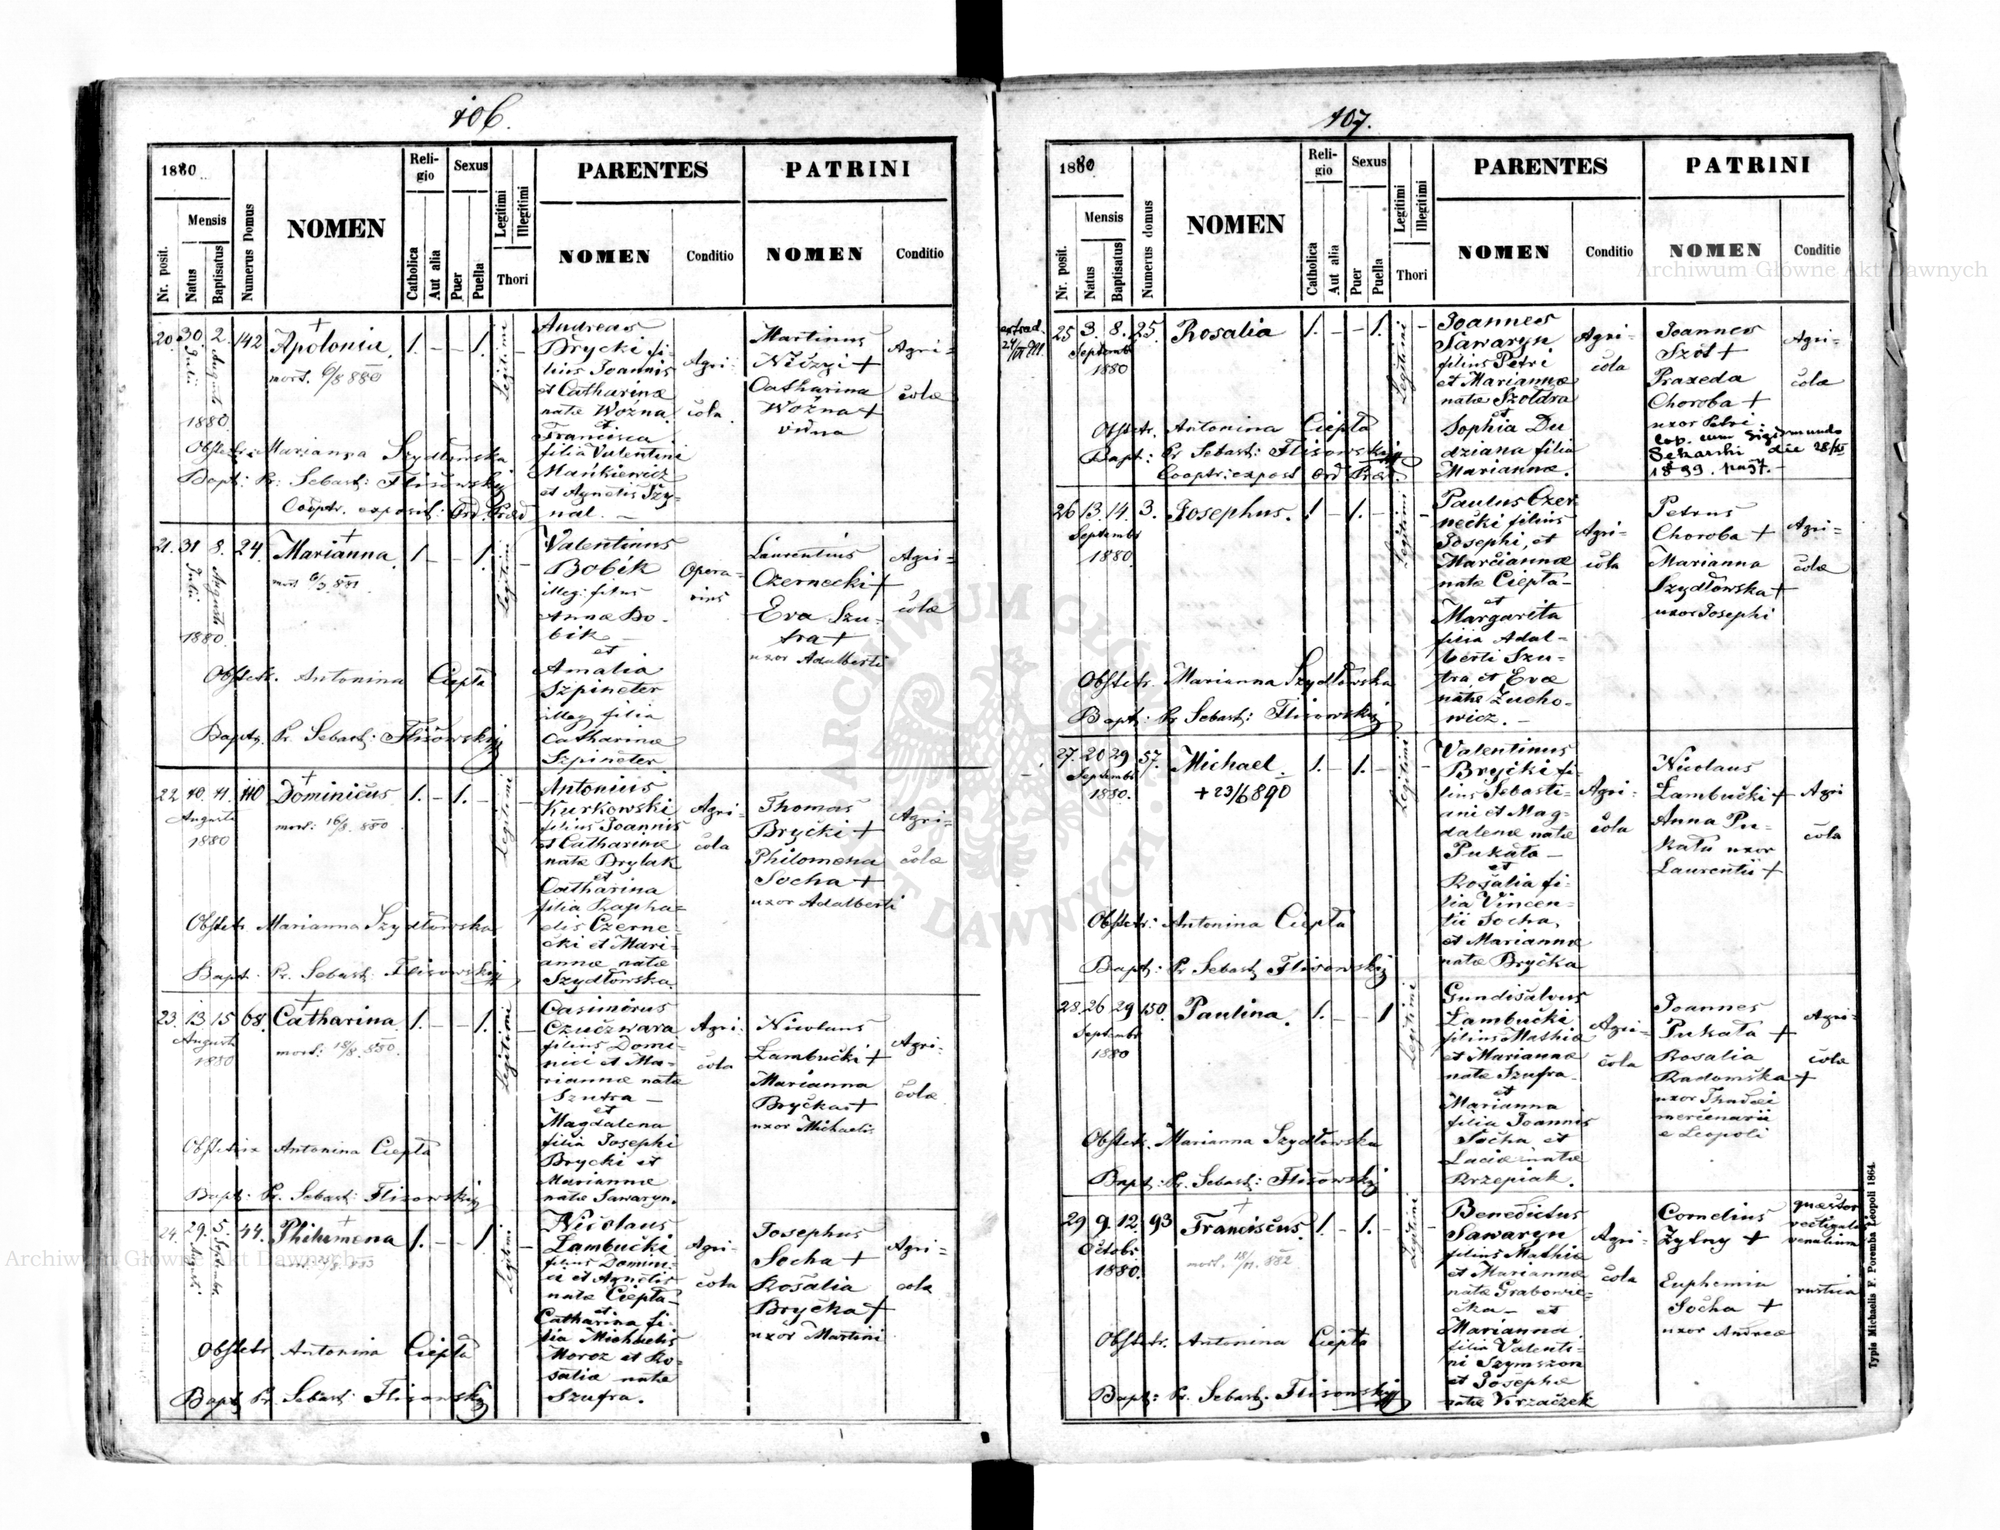 106.
1880.
Nr. posit.
Mensis
Natus
Baptisatus
Numerus Domus
NOMEN
Religio
Catholica
Aut alia
Sexus
Puer
Puella
Legitimi
Illegitimi
Thori
PARENTES
NOMEN
Conditio
PATRINI
NOMEN
Conditio
20. 30. 2. 142 Apolonia 1. - - 1. -
Julii Augusti
1880.
mort. 6/8 880
Legitimi
Andreas
Brycki fi-
lius Joannis
et Catharinæ
natæ Woźna
et
Francisca
filia Valentini
Mańkiewicz
et Agnetis Szy-
nal. -
Agri-
cola.
Martinus
+
Catharina
Woźna +
vidua
Agri-
colæ
Obstetrix Marianna Szydłowska
Bapt: Pr. Sebast: Flisowskij
Cooptr. exposit: Ord. Præd
21. 31 8. 24. Marianna 1 - - 1. -
Julii Augusti
1880.
mort 6/3. 881
Legitimi
Valentinus
Bobik
illeg: filius
Annæ Bo-
bik -
et
Amalia
Szpineter
illeg. filia
Catharinæ
Szpineter.
Opera-
rius
Laurentius
Czernecki +
Eva Szu-
tra +
uxor Adalberti
Agri-
colæ
Obstetr. Antonina Ciepła
Baptz. Pr. Sebast: Flisowskij
22. 10. 11. 110 Dominicus 1. - 1. - -
Augusti
1880
mort: 16/8. 880
Legitimi
Antonius
Kurkowski
filius Joannis
et Catharinæ
natæ Brylak
et
Catharina
filia Rapha-
elis Czerne-
cki et Mari-
annæ natæ
Szydłowska.
Agri-
cola
Thomas
Brycki +
Philomena
Socha +
uxor Adalberti
Agri-
colæ
Obstetr. Marianna Szydłowska
Bapt. Pr. Sebast: Flisowskij
23. 13 15 68. Catharina 1. - - 1. -
Augusti
1880
mort: 18/8. 880.
Legitimi
Casimirus
Czuczwara
filius Domi-
nici et Ma-
riannæ natæ
Szufra -
et
Magdalena
filia Josephi
Brycki et
Mariannæ
natæ Sawaryn.
Agri-
cola
Nicolaus
Lambucki +
Marianna
Brycka +
uxor Michaelis
Agri-
colæ
Obstetrix Antonina Ciepła
Bapt: Pr. Sebast: Flisowskij
24. 29. 5. 44. Philumena 1. - - 1. -
Augusti Septembr
Legitimi
Nicolaus
Lambucki
filius Domini-
ci et Agnetis
natæ Ciepła -
et
Catharina fi-
lia Michaelis
Moroz et Ro-
saliæ natæ
Szufra.
Agri-
cola
Josephus
Socha +
Rosalia
Brycka +
uxor Martini
Agri-
cola
Obstetr. Antonina Ciepła
Bapt Pr. Sebast: Flisowskij
107.
1880
Nr. posit.
Mensis
Natus
Baptisatus
Numerus domus
NOMEN
Religio
Catholica
Aut alia
Sexus
Puer
Puella
Legitimi
Illegitimi
Thori
PARENTES
NOMEN
Conditio
PATRINI
NOMEN
Conditio
extrad.
25 3. 8. 25. Rosalia 1. - - 1. -
Septembr
1880
Legitimi
Joannes
Sawaryn
filius Petri
et Mariannæ
natæ Szoldra
et
Sophia Du
dziana filia
Mariannæ.
Agri-
cola
Joannes
Szot +
Praxeda
Choroba +
uxor Petri
Cop. cum Sigismundo
Sekarski die 28/
1899.
Agri-
colæ
Obstetr. Antonina Ciepła
Bapt: Pr Sebast: Flisowskij
Cooptr: expost Ord Præd.
26 13. 14. 3. Josephus. 1 - 1. - -
Septembr
1880.
Legitimi
Paulus Czer
necki filius
Josephi, et
Mariannæ
natæ Ciepła -
et
Margarita
filia Adal-
berti Szu-
tra et Evæ
natæ Zucho-
wicz. -
Agri-
cola
Petrus
Choroba +
Marianna
Szydłowska +
uxor Josephi
Agri-
colæ
Obstetr. Marianna Szydłowska
Bapt: Pr Sebast: Flisowskij
27. 20 29 57. Michael. 1. - 1. - -
Septembr
1880.
+ 23/6 890
Legitimi
Valentinus
Brycki fi-
lius Sebasti-
ani et Mag-
dalenæ natæ
Pukała -
et
Rosalia fi-
lia Vincen-
tii Socha,
et Mariannæ
natæ Brycka
Agri-
cola
Nicolaus
Lambucki +
Anna Pu-
kała uxor
Laurentii +
Agri
cola
Obstetr: Antonina Ciepła
Bapt: Pr Sebast Flisowskij
28. 26 29 150. Paulina. 1. - - 1
Septembr
1880
Legitimi
Gundisalvus
Lambucki
filius Mathiæ
et Mariannæ
natæ Szufra -
et
Marianna
filia Joannis
Socha et
Luciæ natæ
Krzepiak.
Agri-
cola
Joannes
Pukała +
Rosalia
Radomska +
uxor Thadei
mercenarii
e Leopoli
Agri-
colæ
Obstetr. Marianna Szydłowska
Bapt: Pr. Sebast: Flisowskij
29 9. 12. 93 Franciscus. 1. - 1. - -
Octobr
1880.
mort. 18/11. 882
Legitimi
Benedictus
Sawaryn
filius Mathiæ
et Mariannæ
natæ Grabowie-
cka - et
Marianna
filia Valenti-
ni Szymszon
et Josephæ
natæ Virzaczek
Agri-
cola
Cornelius
Zytny +
Euphemia
Socha +
uxor Andreæ
quæstor
vectigalis
venalium
rustica
Obstetr. Antonina Ciepła
Bapt: Pr. Sebast. Flisowskij
Typis Michaelis F. Poremba Leopoli 1864.
Archiwum Główne Akt Dawnych
Archiwum Główne Akt Dawnych
ARCHIWUM GŁÓWNE AKT DAWNYCH